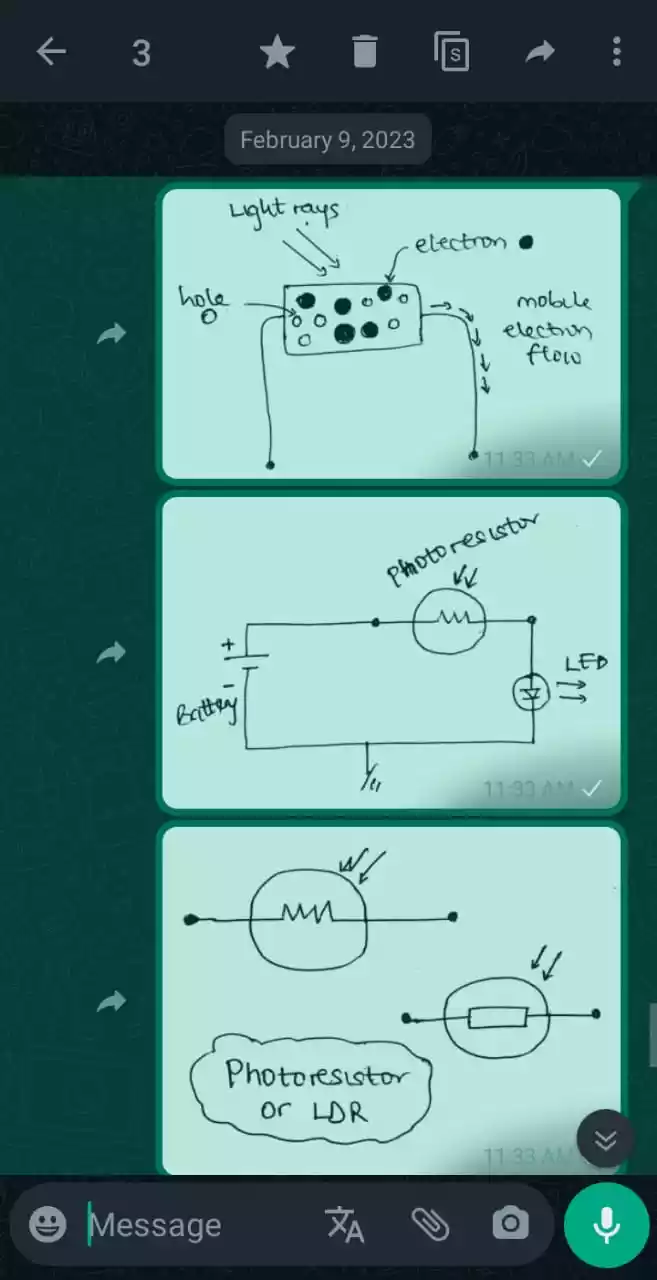 3
S
February 9, 2023
Light rays
electron
hole
mobile
electron
flow
11:33 AM
Photoresistor
+
LED
-
Battery
11:33 AM
Photoresistor
or LDR
11:33 AM
Message